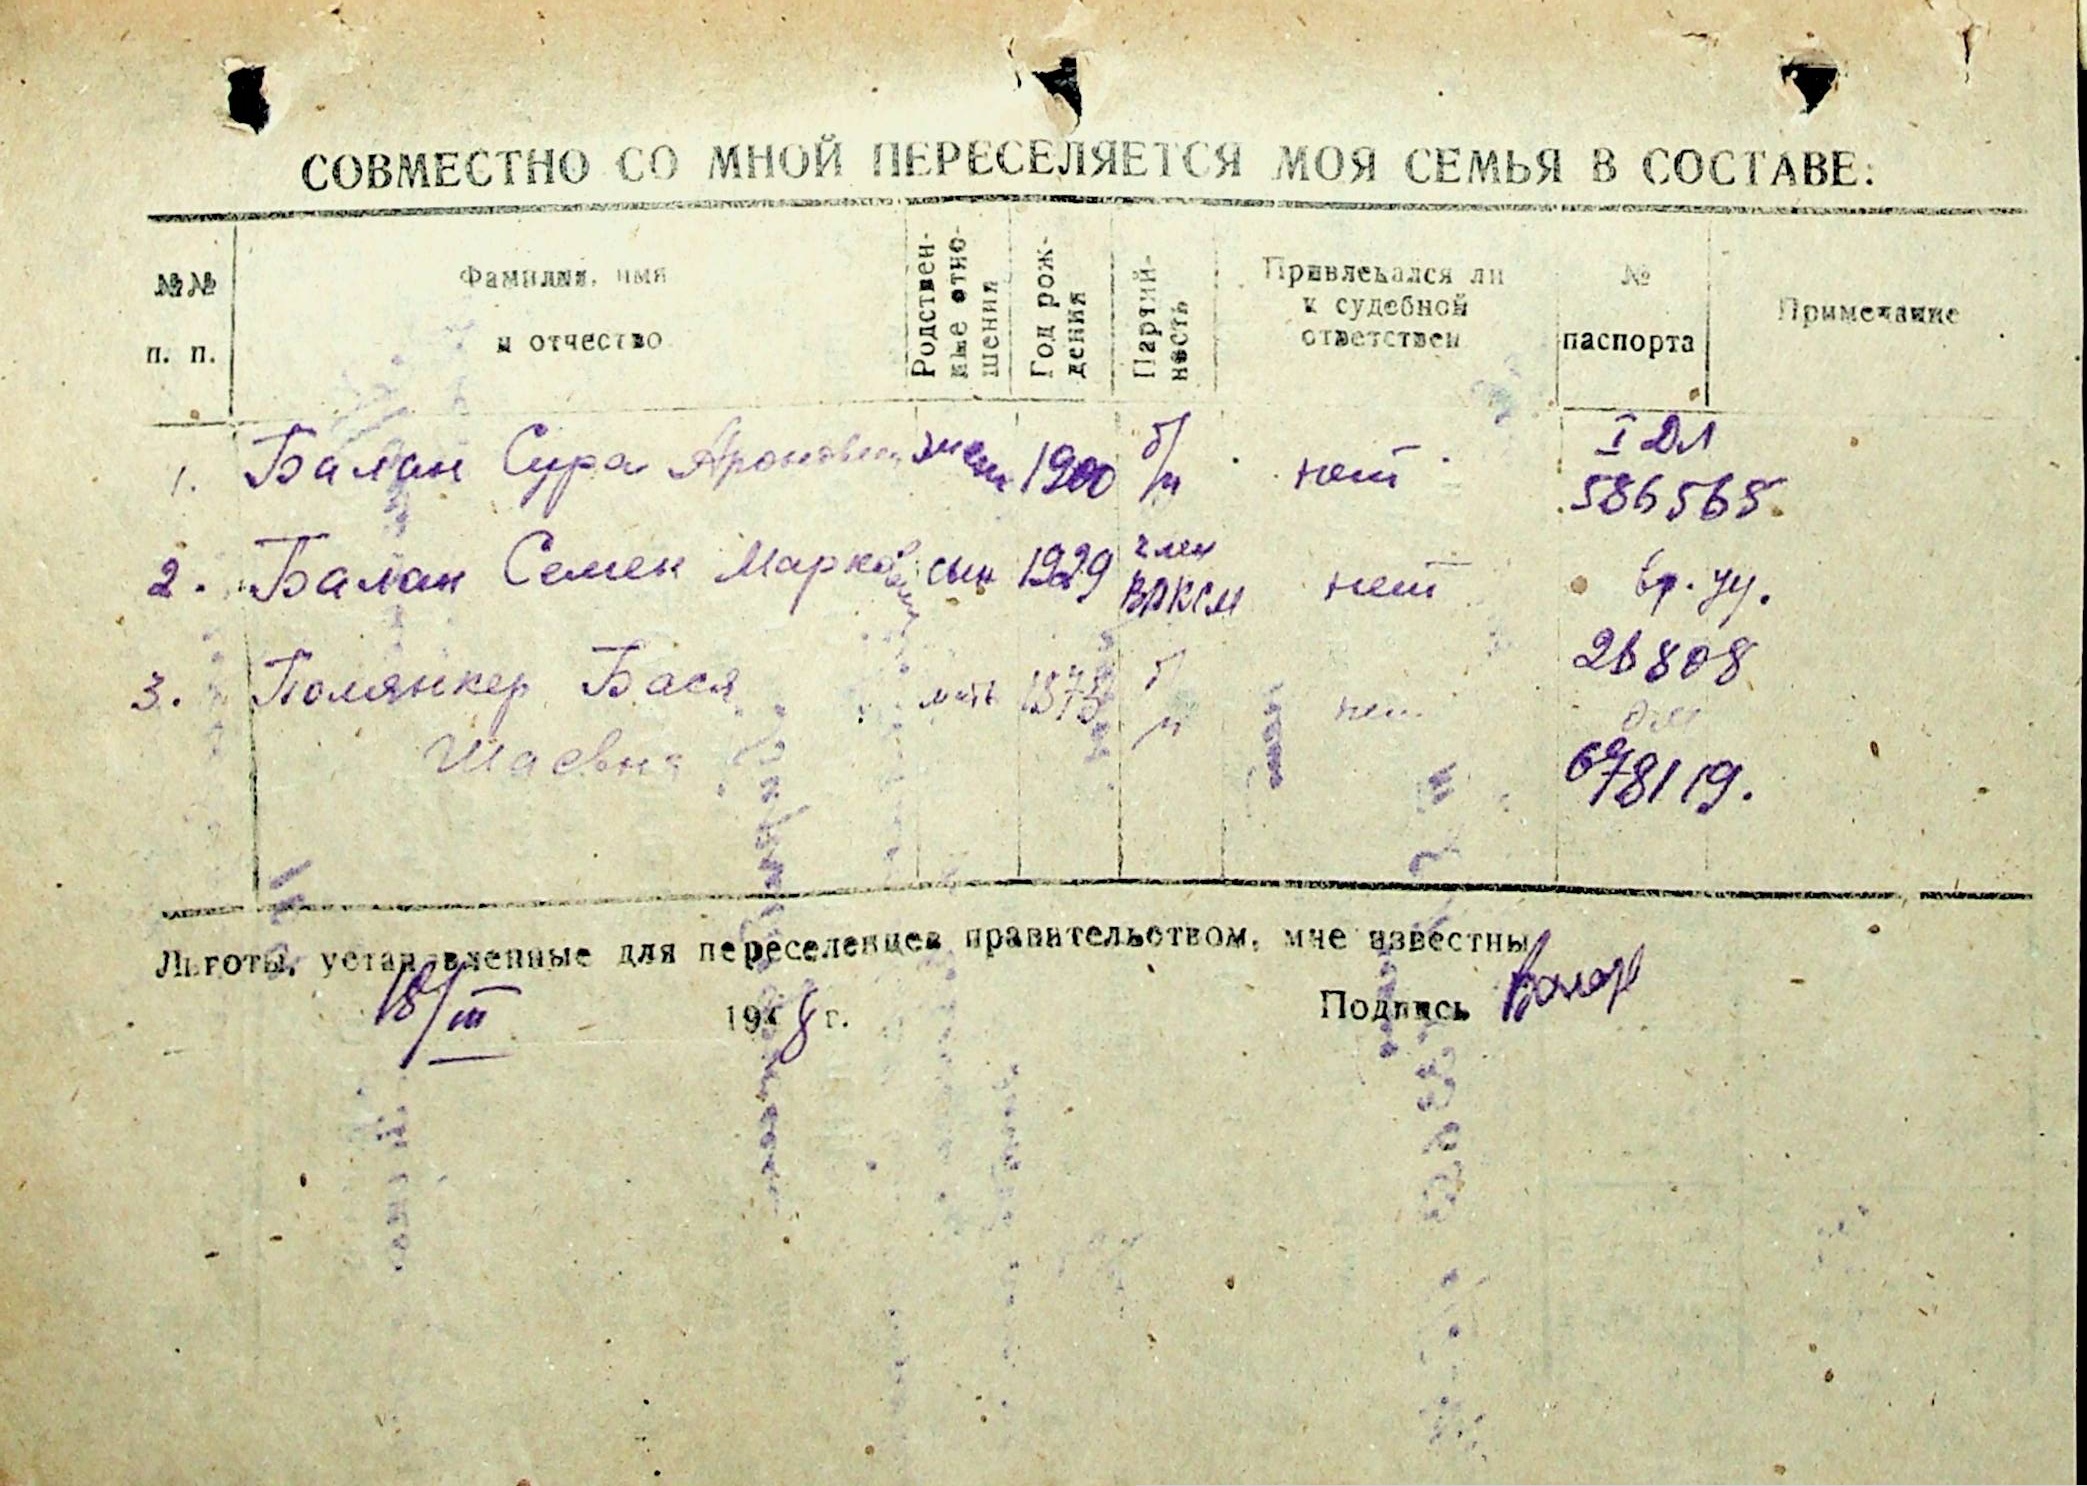 СОВМЕСТНО СО МНОЙ ПЕРЕСЕЛЯЕТСЯ МОЯ СЕМЬЯ В СОСТАВЕ:
№№ п. п.
Фамилия, имя и отчество
Родствен-
ные отно-
шения
Год рож-
дения
Партий-
ность
Привлекался ли
к судебной
ответствен
№
паспорта
Примечание
1. Балан Сура Ароновна жена 1900 б/п нет I ДЛ
586565
2. Балан Семен Маркович сын 1929 член ВЛКСМ нет вр. уд.
26808
3. Полянкер Бася мать б/п нет
Шаевна 678119.
Льготы, установленные для переселенцев правительством, мне известны
18/III 1948 г. Подпись